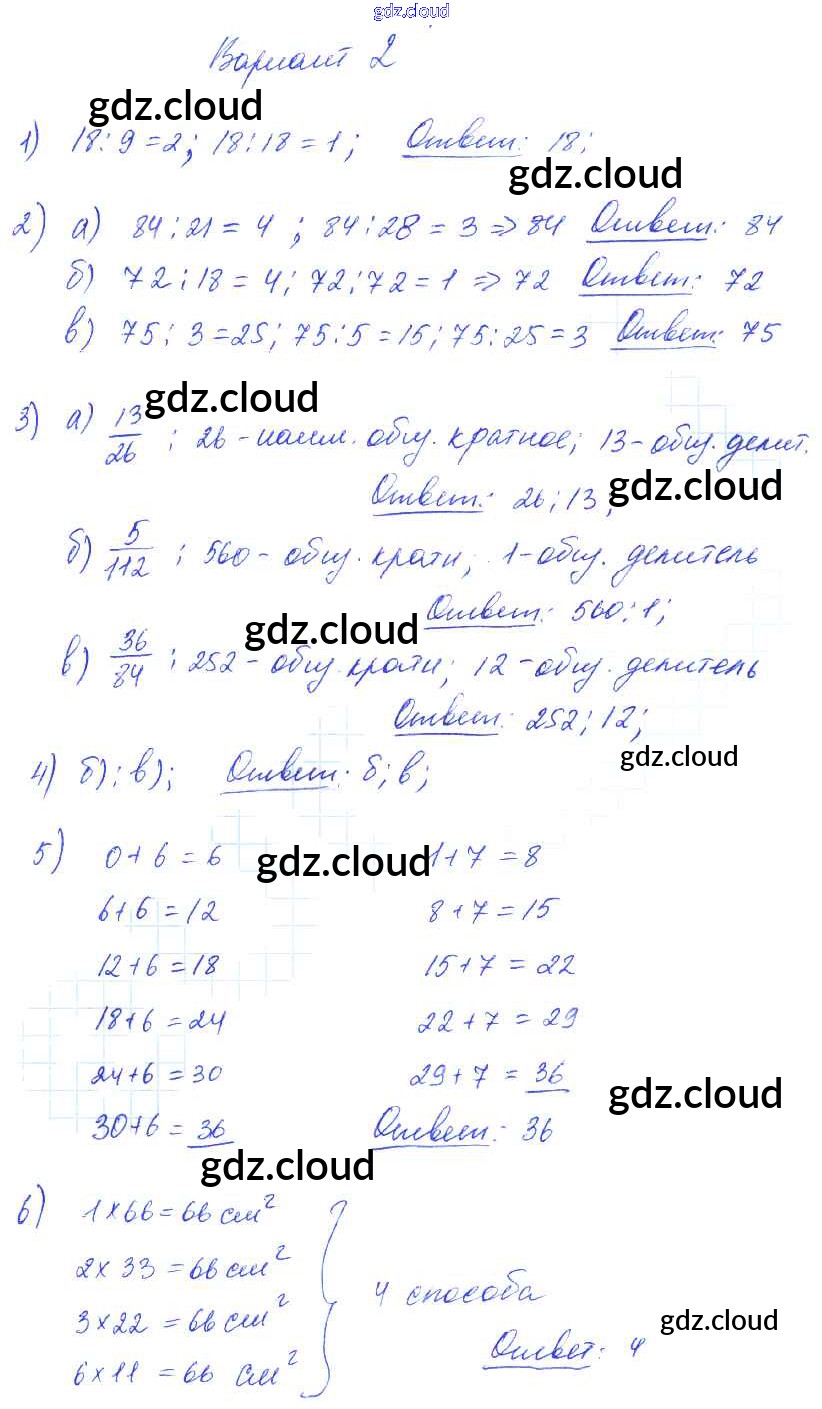 gdz.cloud
Вариант 2
gdz.cloud
1) 18:9=2; 18:18=1; Ответ: 18;
gdz.cloud
2) а) 84:21=4; 84:28=3⇒84 Ответ: 84
б) 72:18=4; 72:72=1⇒72 Ответ: 72
в) 75:3=25; 75:5=15; 75:25=3 Ответ: 75
gdz.cloud
3) а) 13/26; 26-наим. общ. кратное; 13-общ. делит.
gdz.cloud
Ответ: 26; 13;
б) 5/112; 560-общ. кратн; 1-общ. делитель
Ответ: 560; 1;
gdz.cloud
в) 36/84; 252-общ. кратн; 12-общ. делитель
Ответ: 252; 12;
gdz.cloud
4) б); в); Ответ: б; в;
5) 0+6=6 gdz.cloud 1+7=8
6+6=12 8+7=15
12+6=18 15+7=22
18+6=24 22+7=29
24+6=30 29+7=36
gdz.cloud
30+6=36 Ответ: 36
gdz.cloud
6) 1×66=66 см²
2×33=66 см²
3×22=66 см² 4 способа
gdz.cloud
6×11=66 см² Ответ: 4